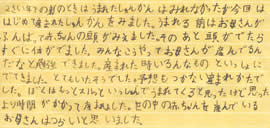 さくい年の前のときはうまれたしゅんかんはみれなかったが今回は
はじめてまれたしゅんかんをみました。うまれる前はお母さんが
ふんばって赤ちゃんの頭がみえました。そのあと頭がでたら
すぐに体がでました。みんなこうやってお母さんが産んでるん
だなと勉強できました。産まれた時いろんなものといっしょに
でてきました。とてもいたそうでした。予想もつかない産まれかたで
した。ぼくはもっとスルといっしゅんでうまれてくると思ったけど思った
より時間がかかって産まれました。世の中の赤ちゃんを産んでいる
お母さんはつらいと思いました。